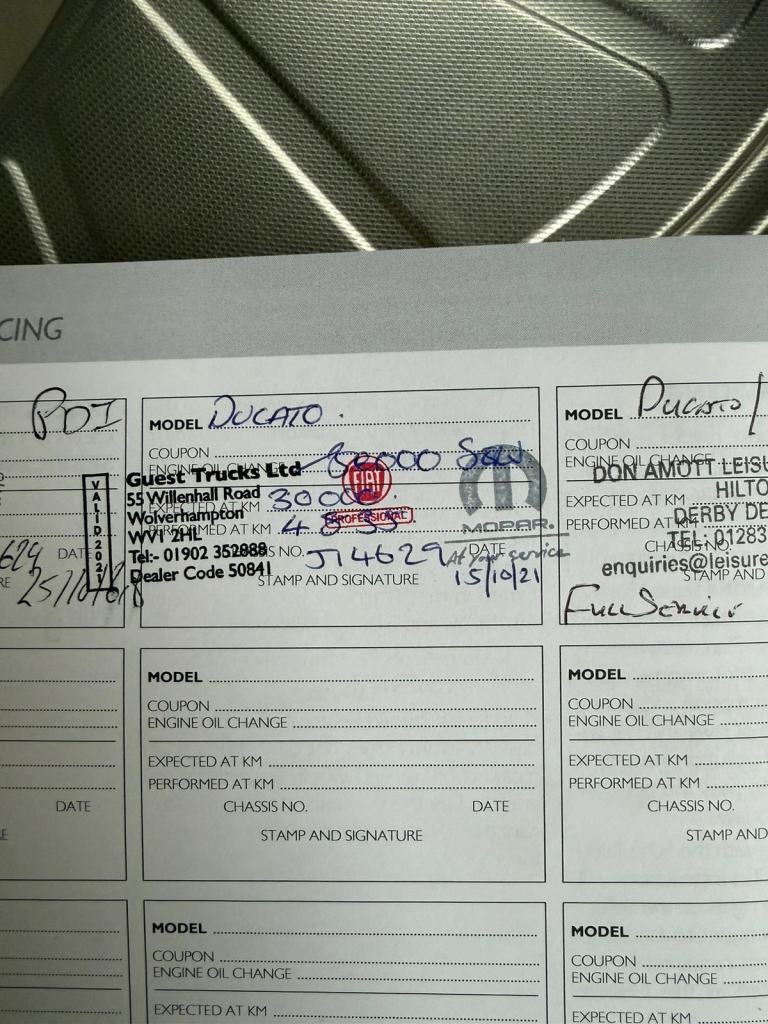 CING
PDI
VALID 2021
624
DATE
25/10/
MODEL DUCATO.
COUPON 30000 Serv
ENGINE OIL CHANGE
Guest Trucks Ltd
55 Willenhall Road
Wolverhampton
WV1 2HL
Tel:- 01902 352888
Dealer Code 50841
30000
FIAT
PROFESSIONAL
MOPAR.
At your service
CHASSIS NO. J14629 DATE
STAMP AND SIGNATURE 15/10/21
MODEL Ducato
COUPON
ENGINE OIL CHANGE
DON AMOTT LEISU
HILTO
EXPECTED AT KM
DERBY DE
PERFORMED AT KM
TEL: 01283
CHASSIS NO.
enquiries@leisure
STAMP AND
Full Service
MODEL
COUPON
ENGINE OIL CHANGE
EXPECTED AT KM
PERFORMED AT KM
CHASSIS NO. DATE
STAMP AND SIGNATURE
DATE
MODEL
COUPON
ENGINE OIL CHANGE
EXPECTED AT KM
PERFORMED AT KM
CHASSIS NO.
STAMP AND
MODEL
COUPON
ENGINE OIL CHANGE
EXPECTED AT KM
MODEL
COUPON
ENGINE OIL CHANGE
EXPECTED AT KM